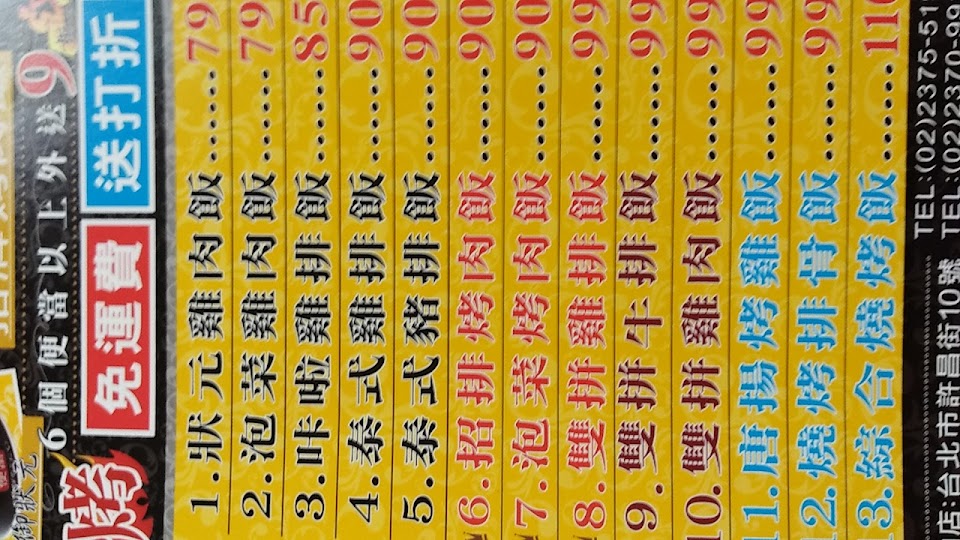 御狀元
6個便當以上外送9
免運費 送打折
1.狀元雞肉飯........79
2.泡菜雞肉飯........79
3.咔啦雞排飯........85
4.泰式雞排飯........90
5.泰式豬排飯........90
6.招牌烤肉飯........90
7.泡菜烤肉飯........90
8.雙拼雞排飯........99
9.雙拼牛排飯........99
10.雙拼雞肉飯........99
11.唐揚烤雞飯........99
12.燒烤排骨飯........99
13.綜合燒烤飯........110
店:台北市許昌街10號
TEL:(02)2375-51
TEL:(02)2370-99